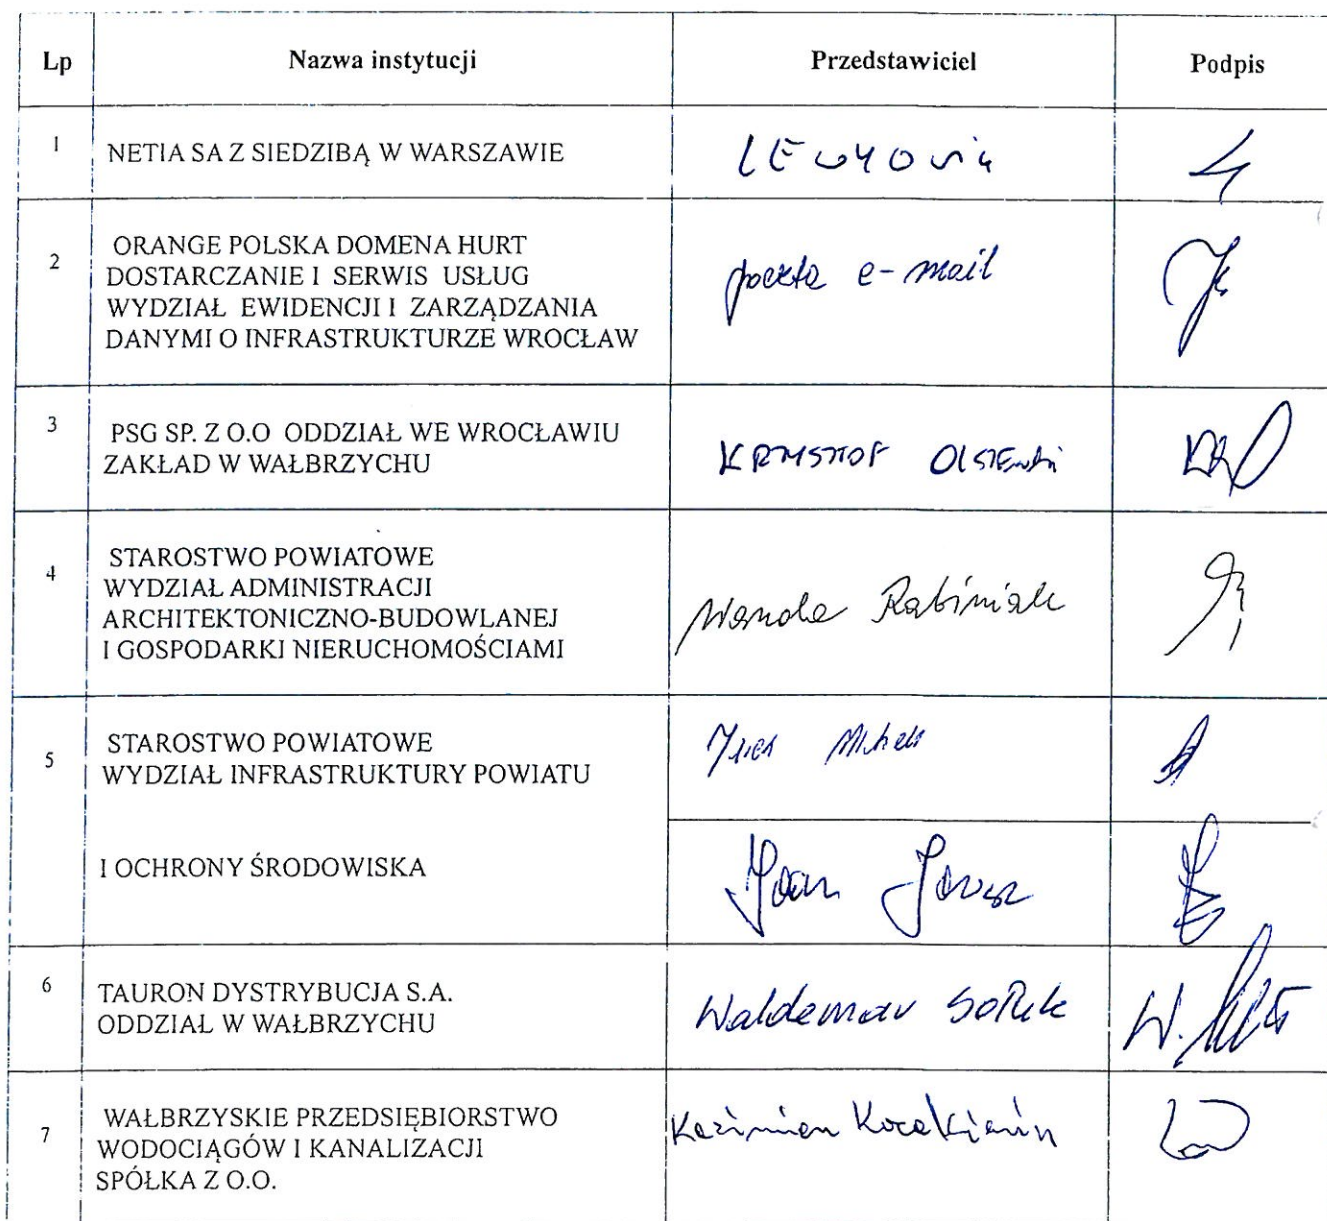 Lp Nazwa instytucji Przedstawiciel Podpis
1 NETIA SA Z SIEDZIBĄ W WARSZAWIE
2 ORANGE POLSKA DOMENA HURT
DOSTARCZANIE I SERWIS USŁUG
WYDZIAŁ EWIDENCJI I ZARZĄDZANIA
DANYMI O INFRASTRUKTURZE WROCŁAW
poczta e-mail
3 PSG SP. Z O.O ODDZIAŁ WE WROCŁAWIU
ZAKŁAD W WAŁBRZYCHU
KRZYSZTOF OLSZEWSKI
4 STAROSTWO POWIATOWE
WYDZIAŁ ADMINISTRACJI
ARCHITEKTONICZNO-BUDOWLANEJ
I GOSPODARKI NIERUCHOMOŚCIAMI
Wanda Rabiniak
5 STAROSTWO POWIATOWE
WYDZIAŁ INFRASTRUKTURY POWIATU
I OCHRONY ŚRODOWISKA
6 TAURON DYSTRYBUCJA S.A.
ODDZIAL W WAŁBRZYCHU
Waldemar
7 WAŁBRZYSKIE PRZEDSIĘBIORSTWO
WODOCIĄGÓW I KANALIZACJI
SPÓŁKA Z O.O.
Kazimierz